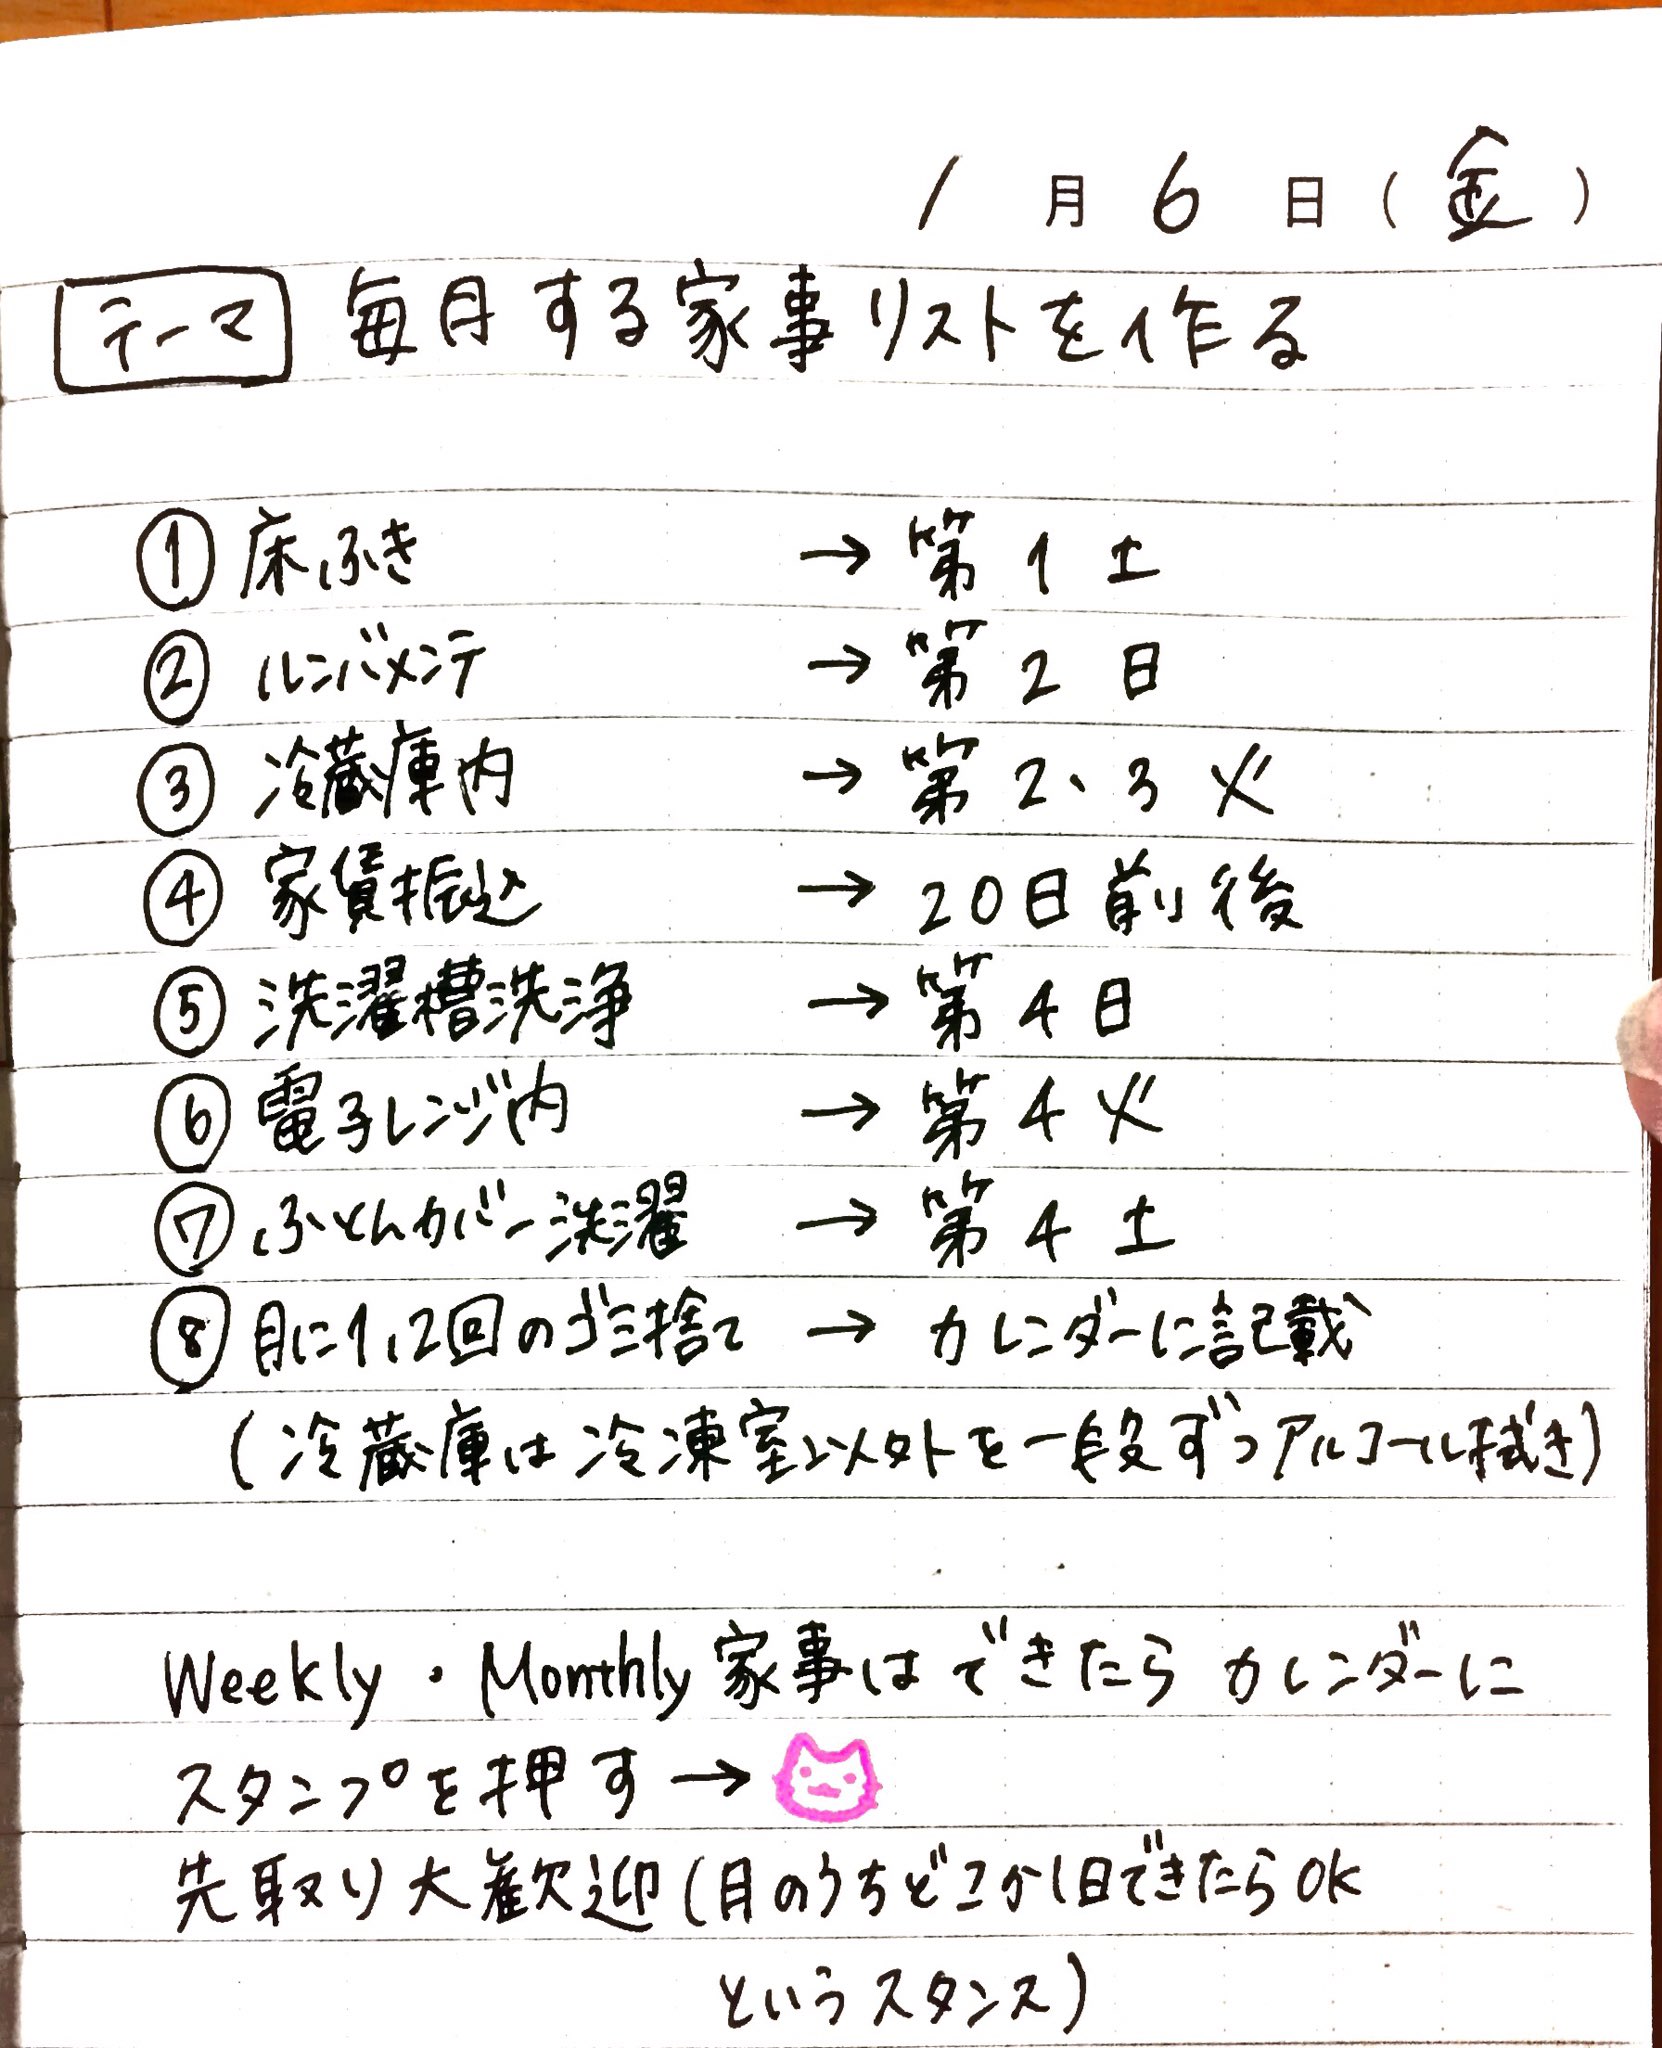 1月6日(金)
テーマ 毎月する家事リストを作る
① 床ふき → 第1土
② ルンバメンテ → 第2日
③ 冷蔵庫内 → 第2、3火
④ 家賃振込 → 20日前後
⑤ 洗濯槽洗浄 → 第4日
⑥ 電子レンジ内 → 第4火
⑦ ふとんカバー洗濯 → 第4土
⑧ 月に1、2回のゴミ捨て → カレンダーに記載
(冷蔵庫は冷凍室以外を一段ずつアルコール拭き)
Weekly・Monthly家事はできたらカレンダーに
スタンプを押す→
先取り大歓迎(月のうちどこか1日できたらOK
というスタンス)